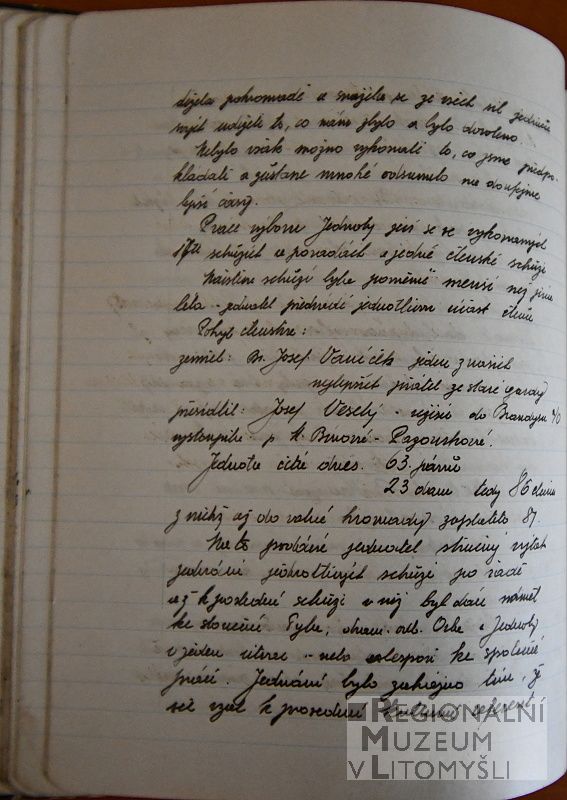 držela pohromadě a snažila se ze všech sil jednotu
udržeti to, co nám zbylo a bylo dovoleno.
Nebylo však možno vykonati to, co jsme předpo-
kládali a zůstane mnohé odsunuto na
lepší časy.
Práce výboru Jednoty jeví se ve vykonaných
schůzích a poradách a jedné členské schůzi
schůzí byla poměrně menší než jiná
léta - jednatel předvádí jednotlivou účast členů
Pohyb členstva:
zemřel: Br. Josef Vaníček jeden z našich
nejlepších přátel ze staré gardy
přesídlil: Josef Veselý - do Brandýsa n/O
vystoupila p.
Jednota čítá dnes. 63. pánů
23 dam tedy 86 členů
z nichž až do valné hromady zaplatilo 81.
Na to podává jednatel stručný výtah
jednání jednotlivých schůzí po řadě
až k poslední schůzi v níž byl dán námět
ke sloučení Tyla, dram. odb. Orla a Jednoty
v jeden - nebo alespoň ke společné
práci. Jednání bylo zahájeno tím, že
byl vzat k kulturní referent
REGIONÁLNÍ
MUZEUM
V LITOMYŠLI